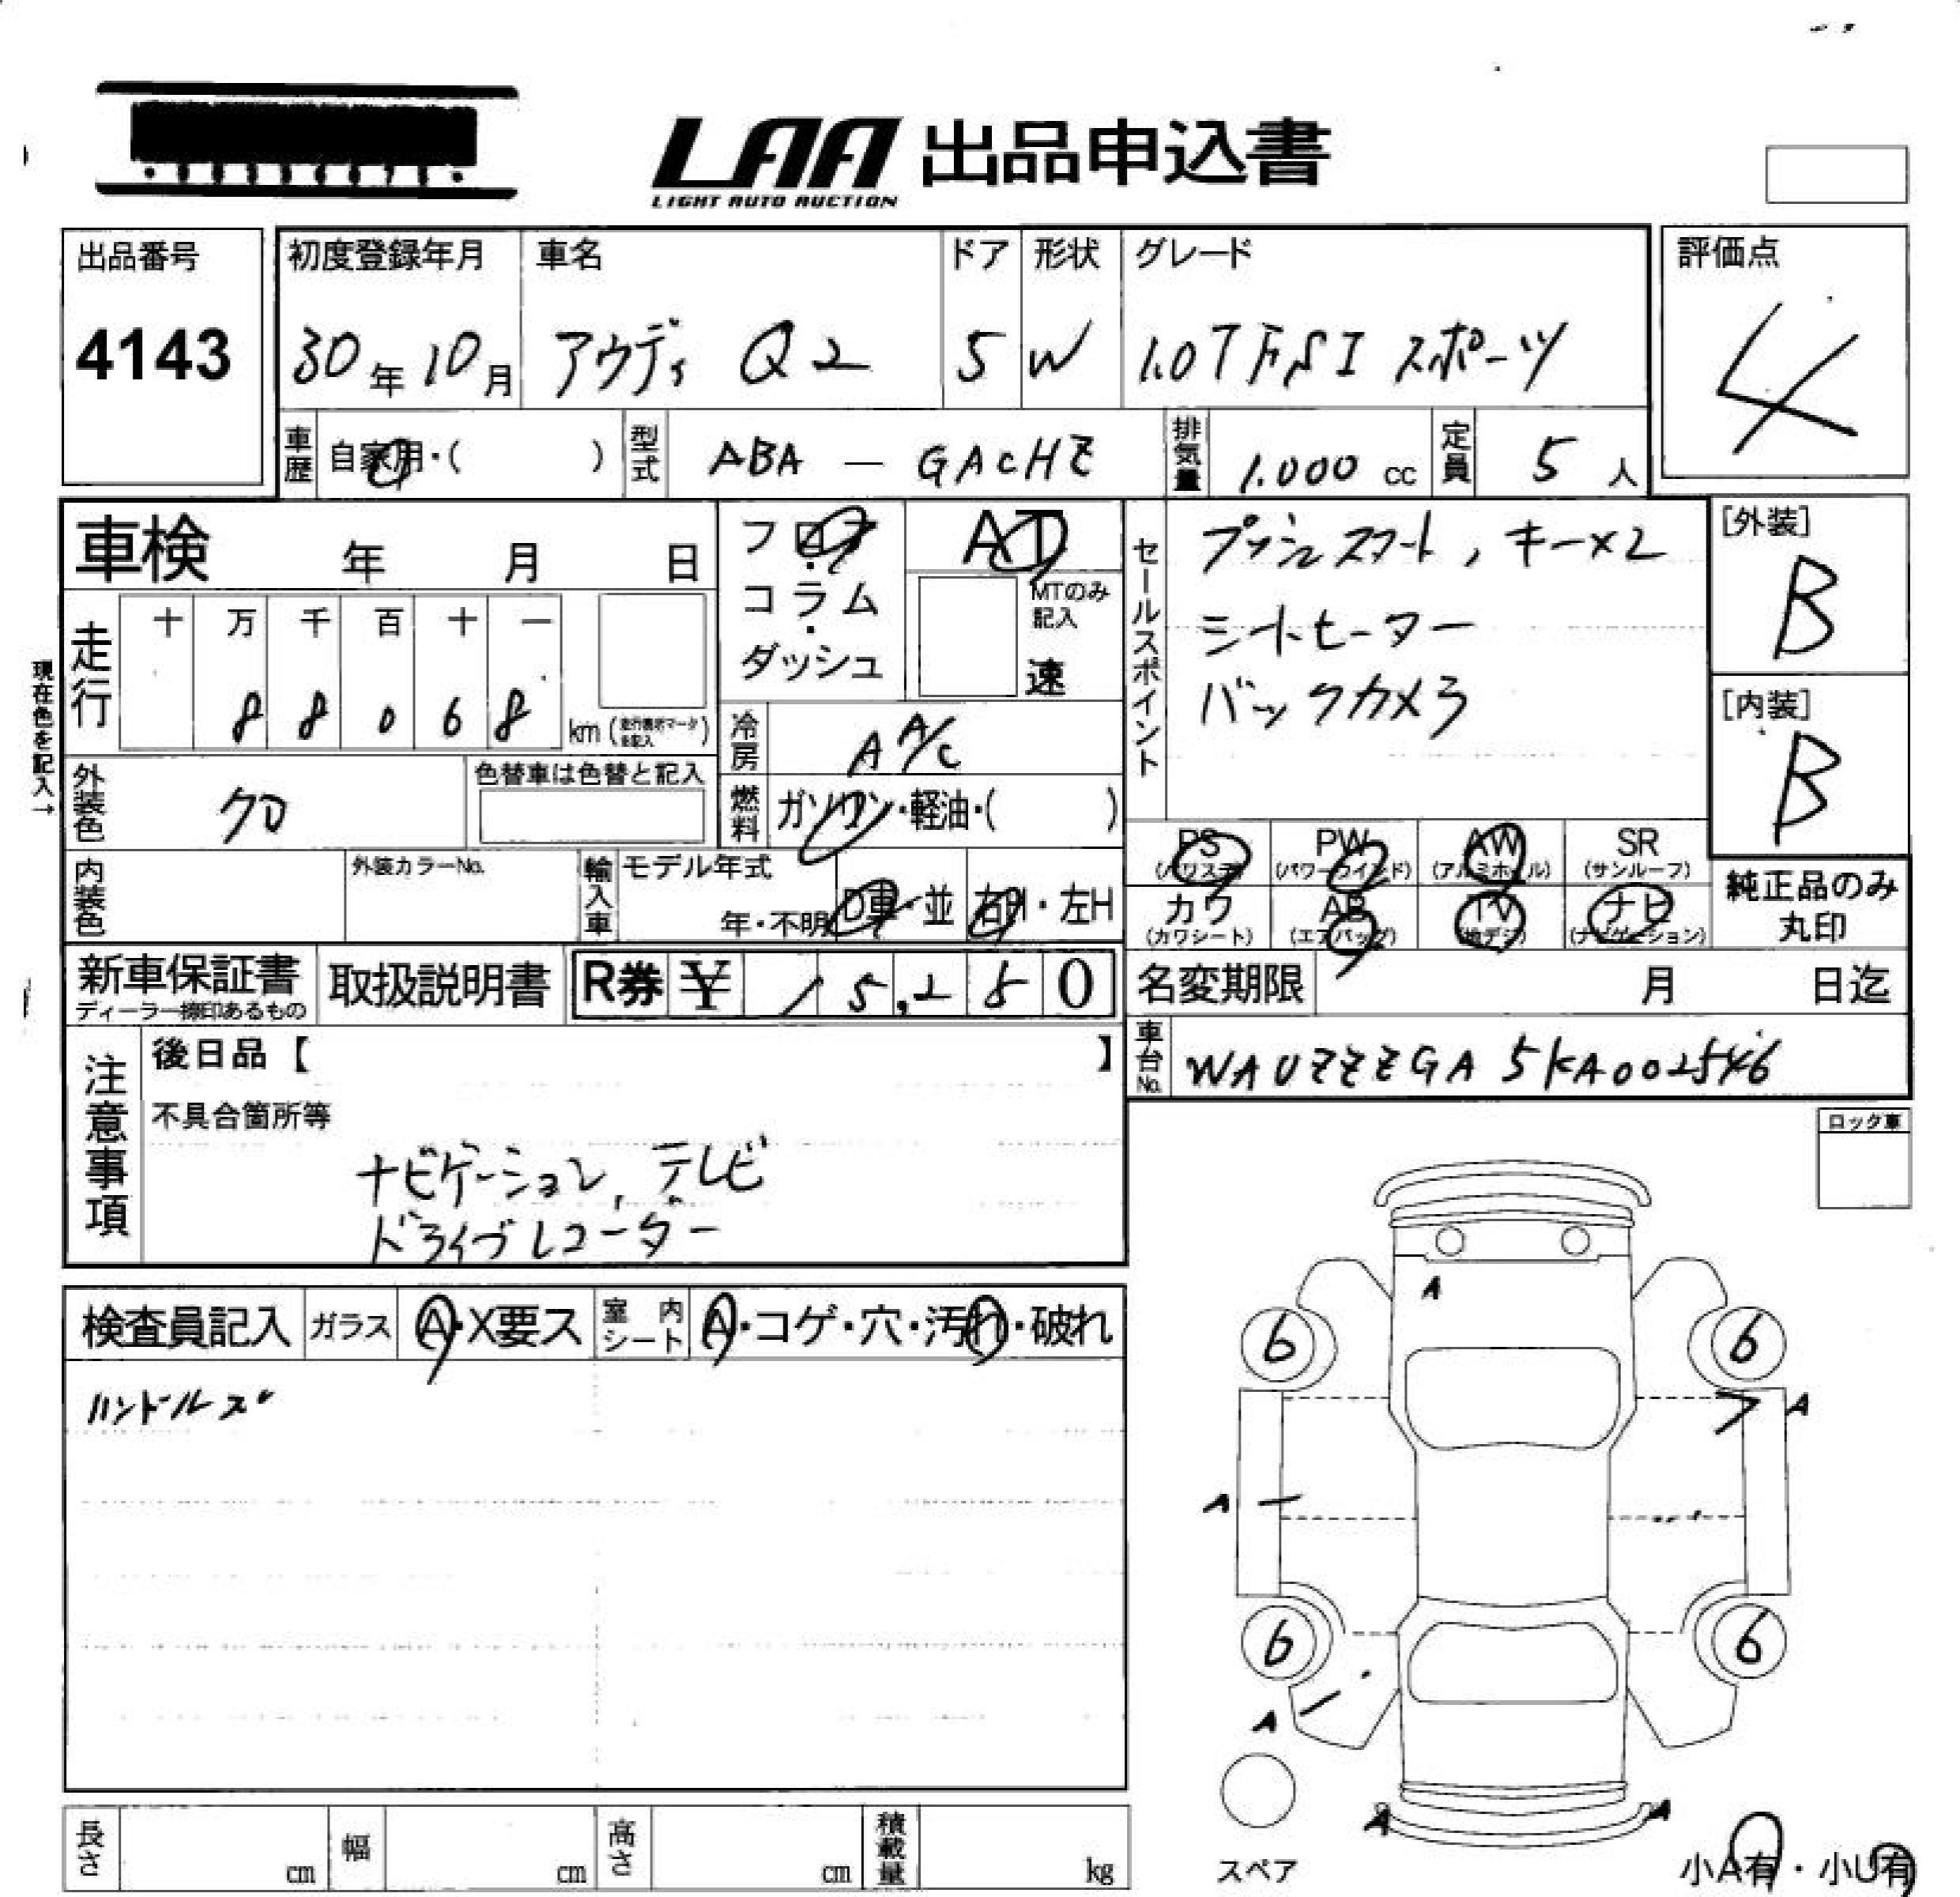 LAA 出品申込書
LIGHT AUTO AUCTION
出品番号
4143
初度登録年月
30年10月
車名
アウディ Q2
ドア
5
形状
W
グレード
1.0TFSI スポーツ
評価点
4
車歴 自家用・( )
型式 ABA — GACHZ
排気量 1.000 cc
定員 5 人
車検 年 月 日
現在色を記入→
走行
十 万 千 百 十 一
8 8 0 6 8
km
外装色 クロ
色替車は色替と記入
内装色
外装カラーNo.
フロア
・
コラム
・
ダッシュ
AT
MTのみ
記入
速
冷房 A A/C
燃料 ガソリン・軽油・( )
輸入車 モデル年式
年・不明
D車・並
右H・左H
セールスポイント
プッシュスタート, キー×2
シートヒーター
バックカメラ
[外装]
B
[内装]
B
PS
(パワステ)
PW
(パワーウインド)
AW
(アルミホイル)
SR
(サンルーフ)
カワ
(カワシート)
AB
(エアバッグ)
TV
(地デジ)
ナビ
(ナビゲーション)
純正品のみ
丸印
新車保証書
ディーラー捺印あるもの
取扱説明書
R券 ¥ 15,280
名変期限 月 日迄
車台No. WAUZZZGA5KA002546
注意事項
後日品【 】
不具合箇所等
ナビゲーション, テレビ
ドライブレコーダー
ロック車
検査員記入
ガラス A・X要ス
室内シート A・コゲ・穴・汚れ・破れ
ハンドルスレ
A
6
6
A
A
6
6
A
A
A
スペア
小A有・小U有
長さ cm
幅 cm
高さ cm
積載量 kg